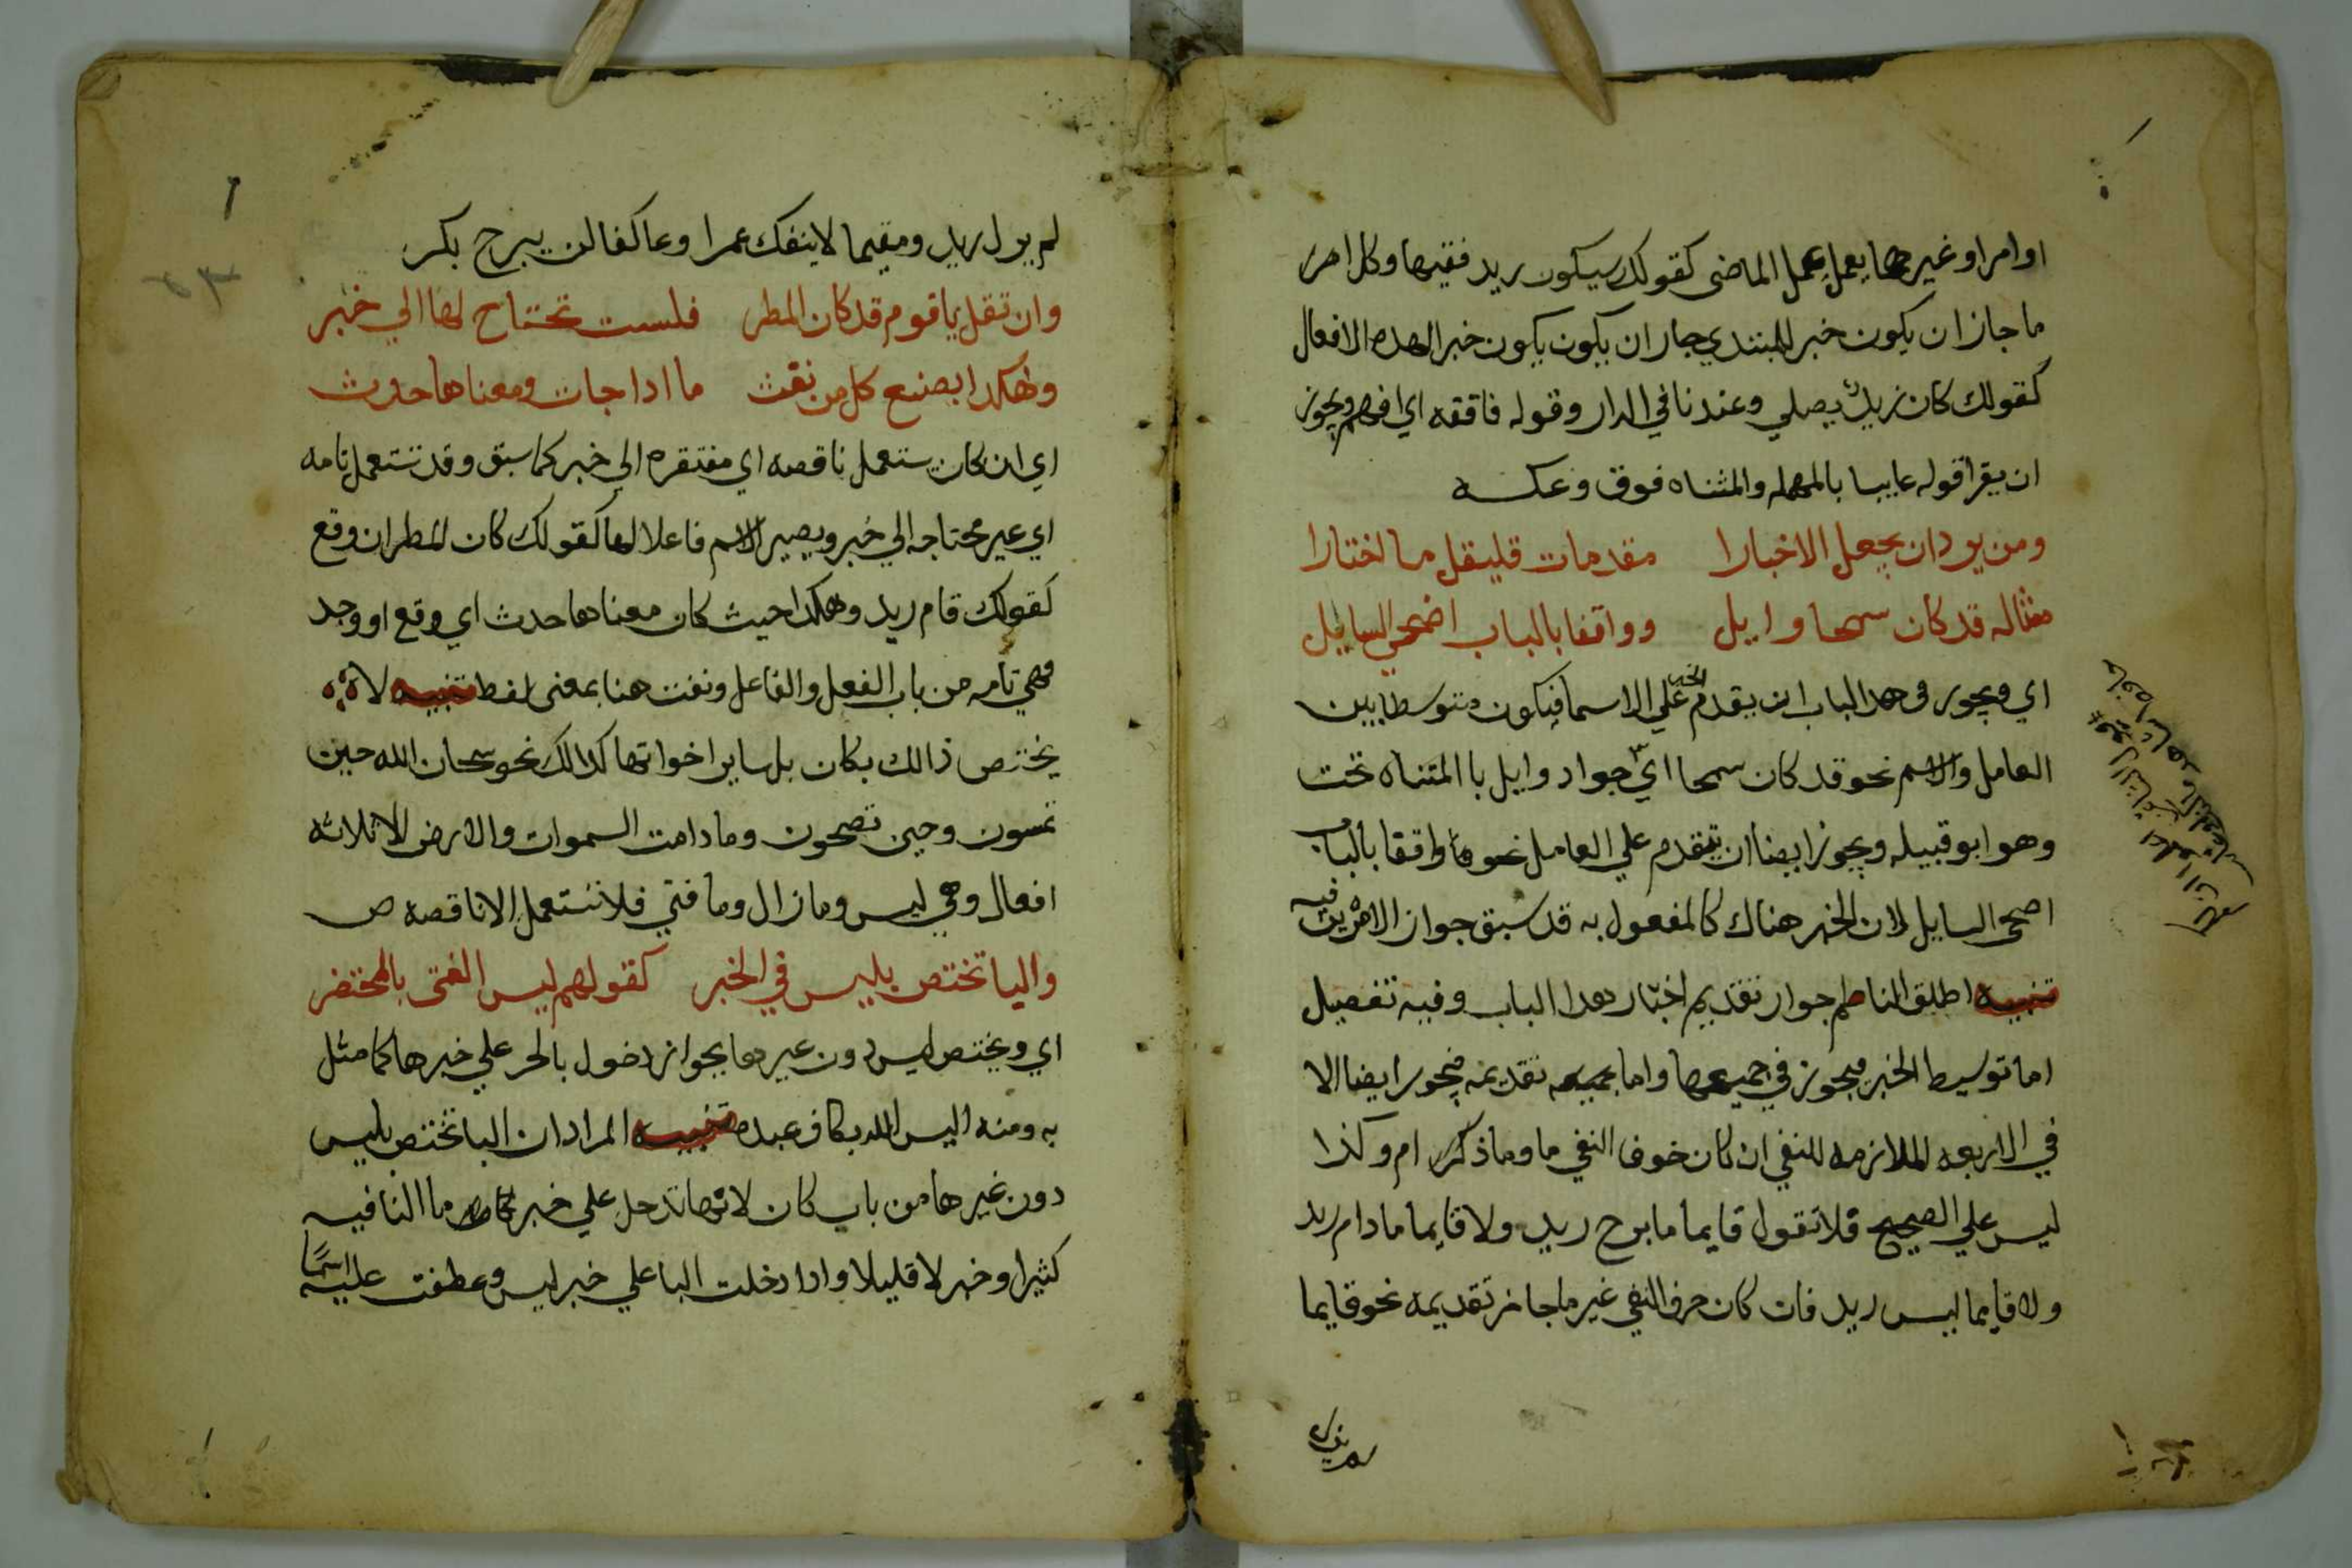 اوامرا وغيرهما يعمل عمل الماضي كقولك سيكون ريد فقيها وكل امر
ما جاز ان يكون خبر للمبتدي جاز ان يكون يكون خبر الهده الافعال
كقولك كان زيد يصلي وعندنا في الدار وقوله فافقه اي افهم ويجوز
ان يقرا قوله عايبا بالمهمله والمثناه فوق وعكسه
ومن يرد ان يجعل الاخبارا مقدمات فليقل ما اختارا
مثاله قد كان سمحا وايل وواقفا بالباب اضحي السايل
اي ويجوز في هدا الباب ان يقدم الخبر علي الاسما فيكون متوسطا بين
العامل والاسم نحو قد كان سمحا اي جواد وايل با المثناه تحت
وهو ابو قبيله ويجوز ايضا ان يتقدم علي العامل نحو واقفا بالباب
اضحى السايل لان الخبر هناك كالمفعول به قد سبق جواز الامرين فيه
تنبيه اطلق الناظم جواز تقديم اخبار هدا الباب وفيه تفصيل
اما توسيط الخبر فيجوز في جميعها واما تقديمه فيجوز ايضا الا
في الاربعه الملازمه للنفي ان كان حرف النفي ما وما ذكر ام وكذا
ليس علي الصحيح فلا تقول قايما ما برح ريد ولا قايما ما دام ريد
ولا قايما ليس ريد فان كان حرف النفي غير ما جاز تقديمه نحو قايما
لم يزل ريد ومقيما لا ينفك عمرا وعاكفا لن يبرح بكر
وان تقل يا قوم قد كان المطر فلست تحتاج لها الي خبر
وهكدا يصنع كل من نفث ما ادا جات ومعناها حدث
اي ان كان يستعمل ناقصه اي مفتقره الي خبر كما سبق وقد تستعمل تامه
اي عير محتاجه الي خبر ويصير الاسم فاعلا لها كقولك كان المطر ان وقع
كقولك قام ريد وهكدا حيث كان معناها حدث اي وقع او وجد
فهي تامه من باب الفعل والفاعل ونفث هنا بمعنى لفط تنبيه لا
يختص ذالك بكان بل ساير اخواتها كدالك نحو سبحان الله حين
تمسون وحين تصبحون وما دامت السموات والارض الا ثلاثه
افعال وهي ليس وما زال وما فتي فلا تستعمل الا ناقصه ص
واليا تختص بليس في الخبر كقولهم ليس الفتى بالمحتضر
اي ويختص ليس دون عيرها بجواز دخول بالجر علي خبرها كما مثل
به ومنه اليس الله بكاف عبده تنبيه المراد ان البا تختص بليس
دون غيرها من باب كان لانها تدخل علي خبر ما النافيه
كثيرا وخبر لا قليلا وادا دخلت البا علي خبر ليس وعطفت عليه اسما